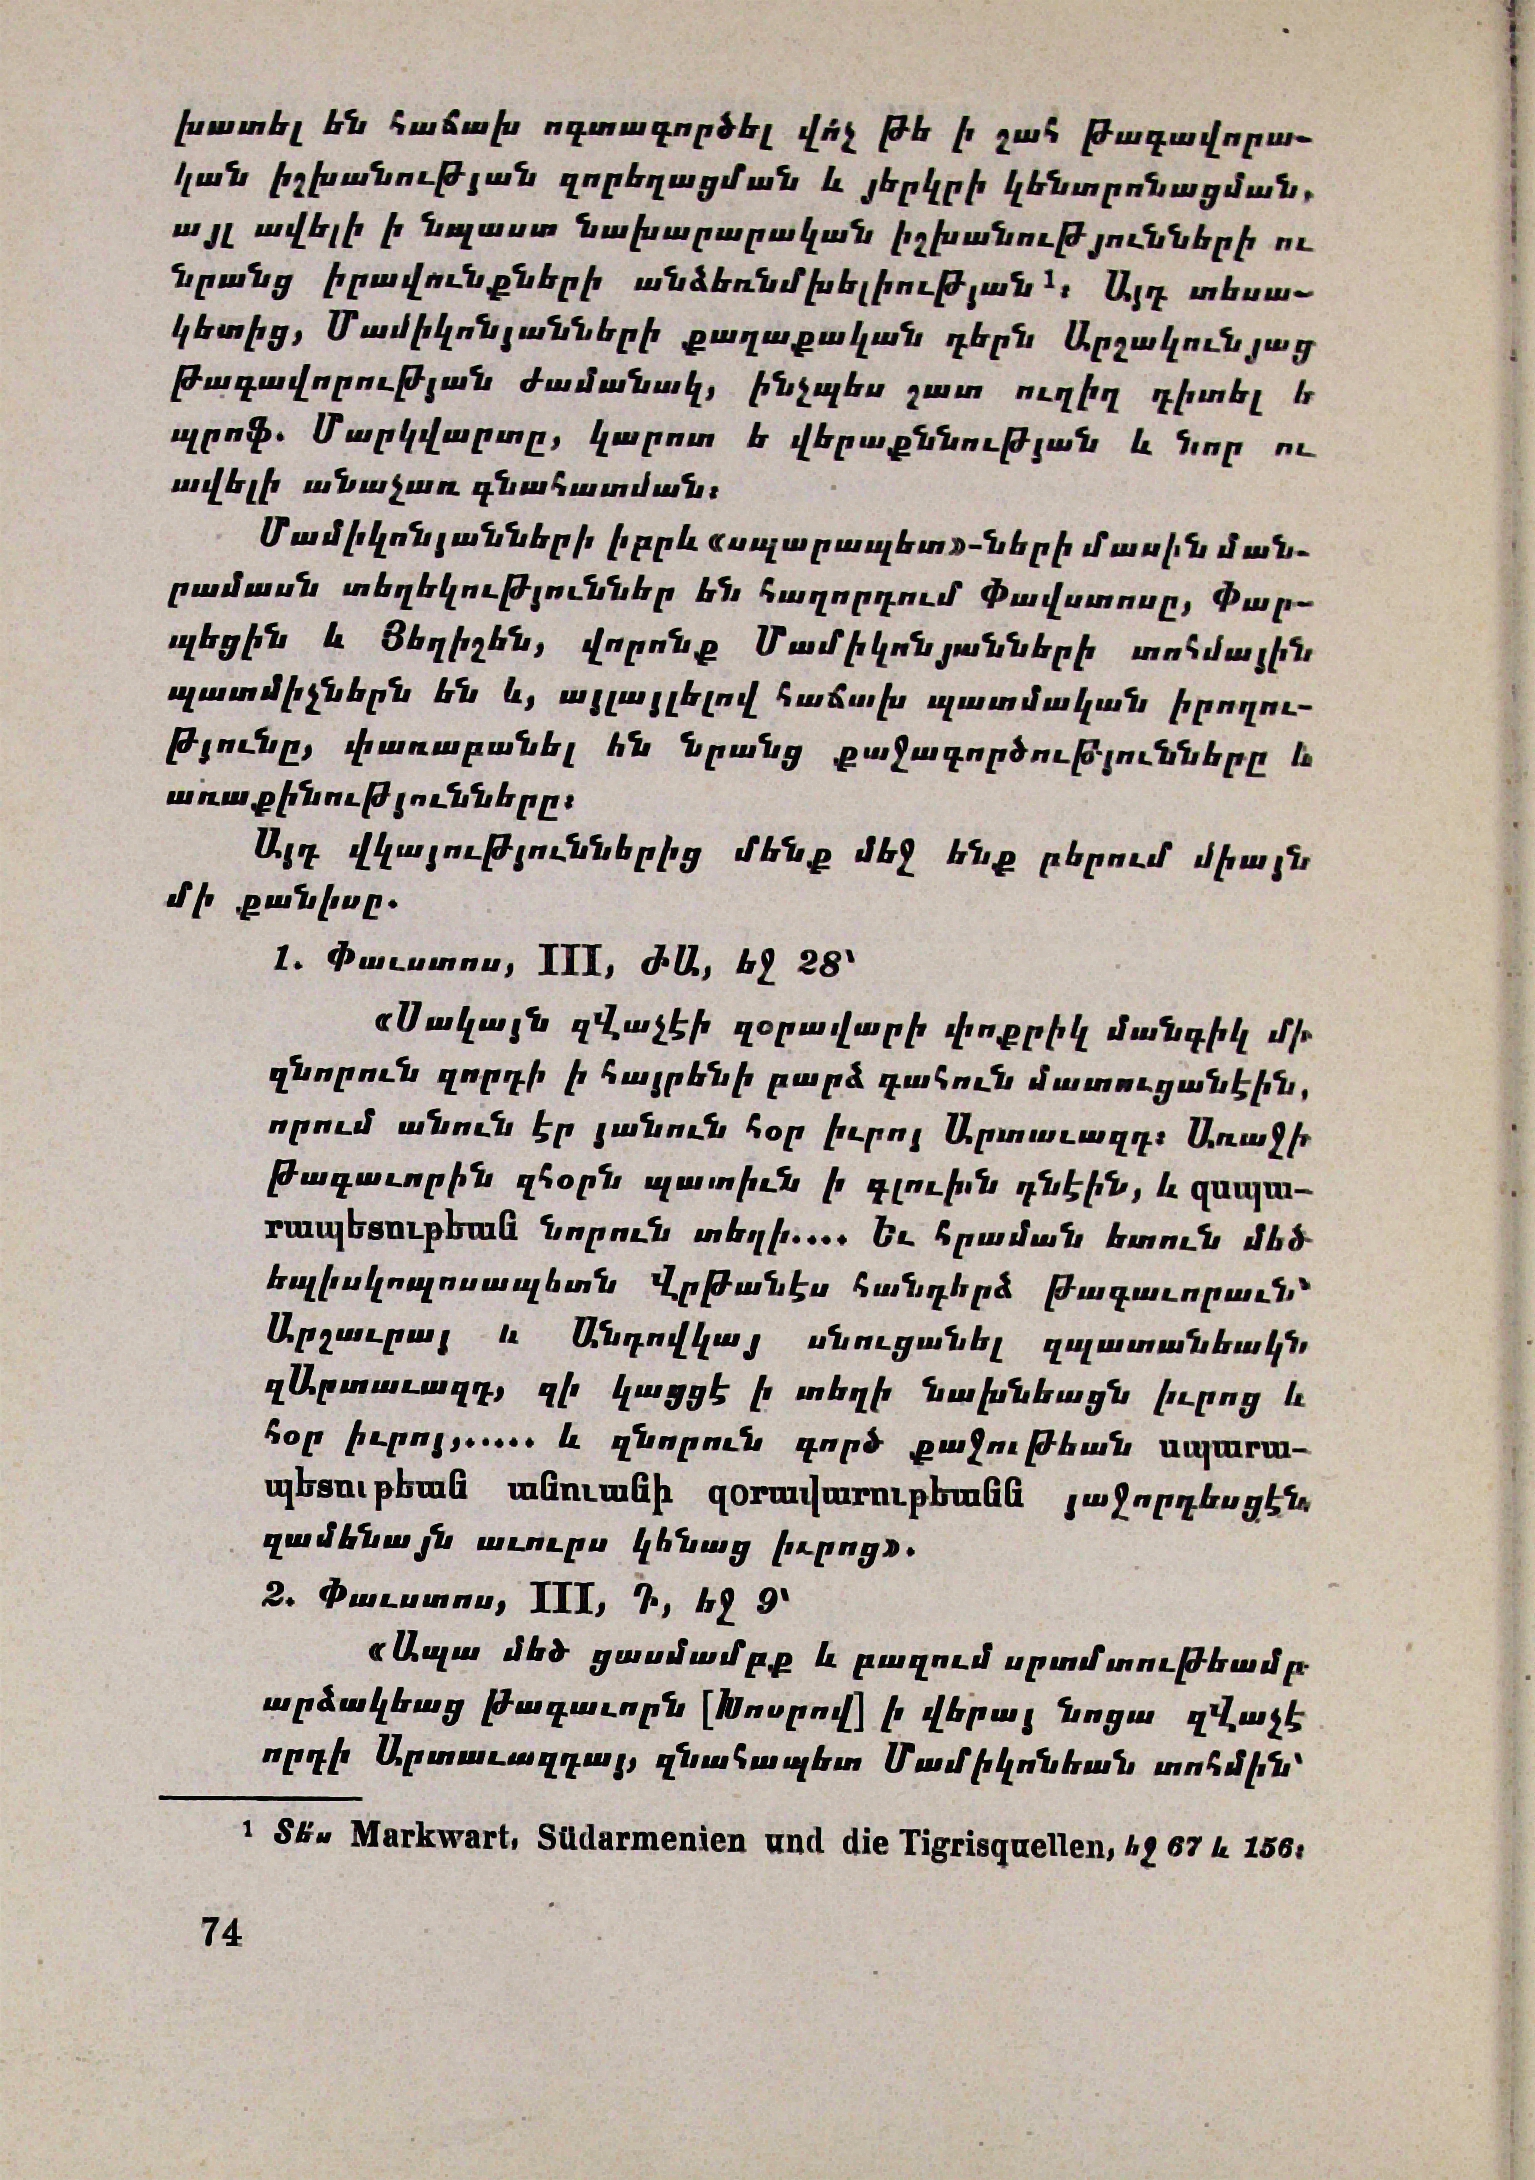 խատել են հաճախ ոգտագործել վո՛չ թե ի շահ թագավորա-
կան իշխանության զորեղացման և յերկրի կենտրոնացման,
այլ ավելի ի նպաստ նախարարական իշխանությունների ու
նրանց իրավունքների անձեռնմխելիության¹։ Այդ տեսա-
կետից, Մամիկոնյանների քաղաքական դերն Արշակունյաց
թագավորության ժամանակ, ինչպես շատ ուղիղ դիտել ե
պրոֆ. Մարկվարտը, կարոտ ե վերաքննության և նոր ու
ավելի անաչառ գնահատման։
Մամիկոնյանների իբրև «սպարապետ»-ների մասին ման-
րամասն տեղեկություններ են հաղորդում Փավստոսը, Փար-
պեցին և Յեղիշեն, վորոնք Մամիկոնյանների տոհմային
պատմիչներն են և, այլայլելով հաճախ պատմական իրողու-
թյունը, փառաբանել են նրանց քաջագործությունները և
առաքինությունները։
Այդ վկայություններից մենք մեջ ենք բերում միայն
մի քանիսը.
1. Փաւստոս, III, ԺԱ, եջ 28՝
«Սակայն զՎաչէի զօրավարի փոքրիկ մանգիկ մի
զնորուն զորդի ի հայրենի բարձ գահուն մատուցանէին,
որում անուն էր յանուն հօր իւրոյ Արտաւազդ։ Առաջի
թագաւորին զհօրն պատիւն ի գլուխն դնէին, և զսպա-
րապետութեան նորուն տեղի.... Եւ հրաման ետուն մեծ
եպիսկոպոսապետն Վրթանէս հանդերձ թագաւորաւն՝
Արշաւրայ և Անդովկայ սնուցանել զպատանեակն
զԱրտաւազդ, զի կացցէ ի տեղի նախնեացն իւրոց և
հօր իւրոյ,..... և զնորուն գործ քաջութեան սպարա-
պետութեան անուանի զօրավարութեանն յաջորդեսցէն
զամենայն աւուրս կենաց իւրոց».
2. Փաւստոս, III, Դ, եջ 9՝
«Ապա մեծ ցասմամբք և բազում սրտմտութեամբ
արձակեաց թագաւորն [Խոսրով] ի վերայ նոցա զՎաչէ
որդի Արտաւազդայ, զնահապետ Մամիկոնեան տոհմին՝
¹ Տե՛ս Markwart, Südarmenien und die Tigrisquellen, եջ 67 և 156։
74